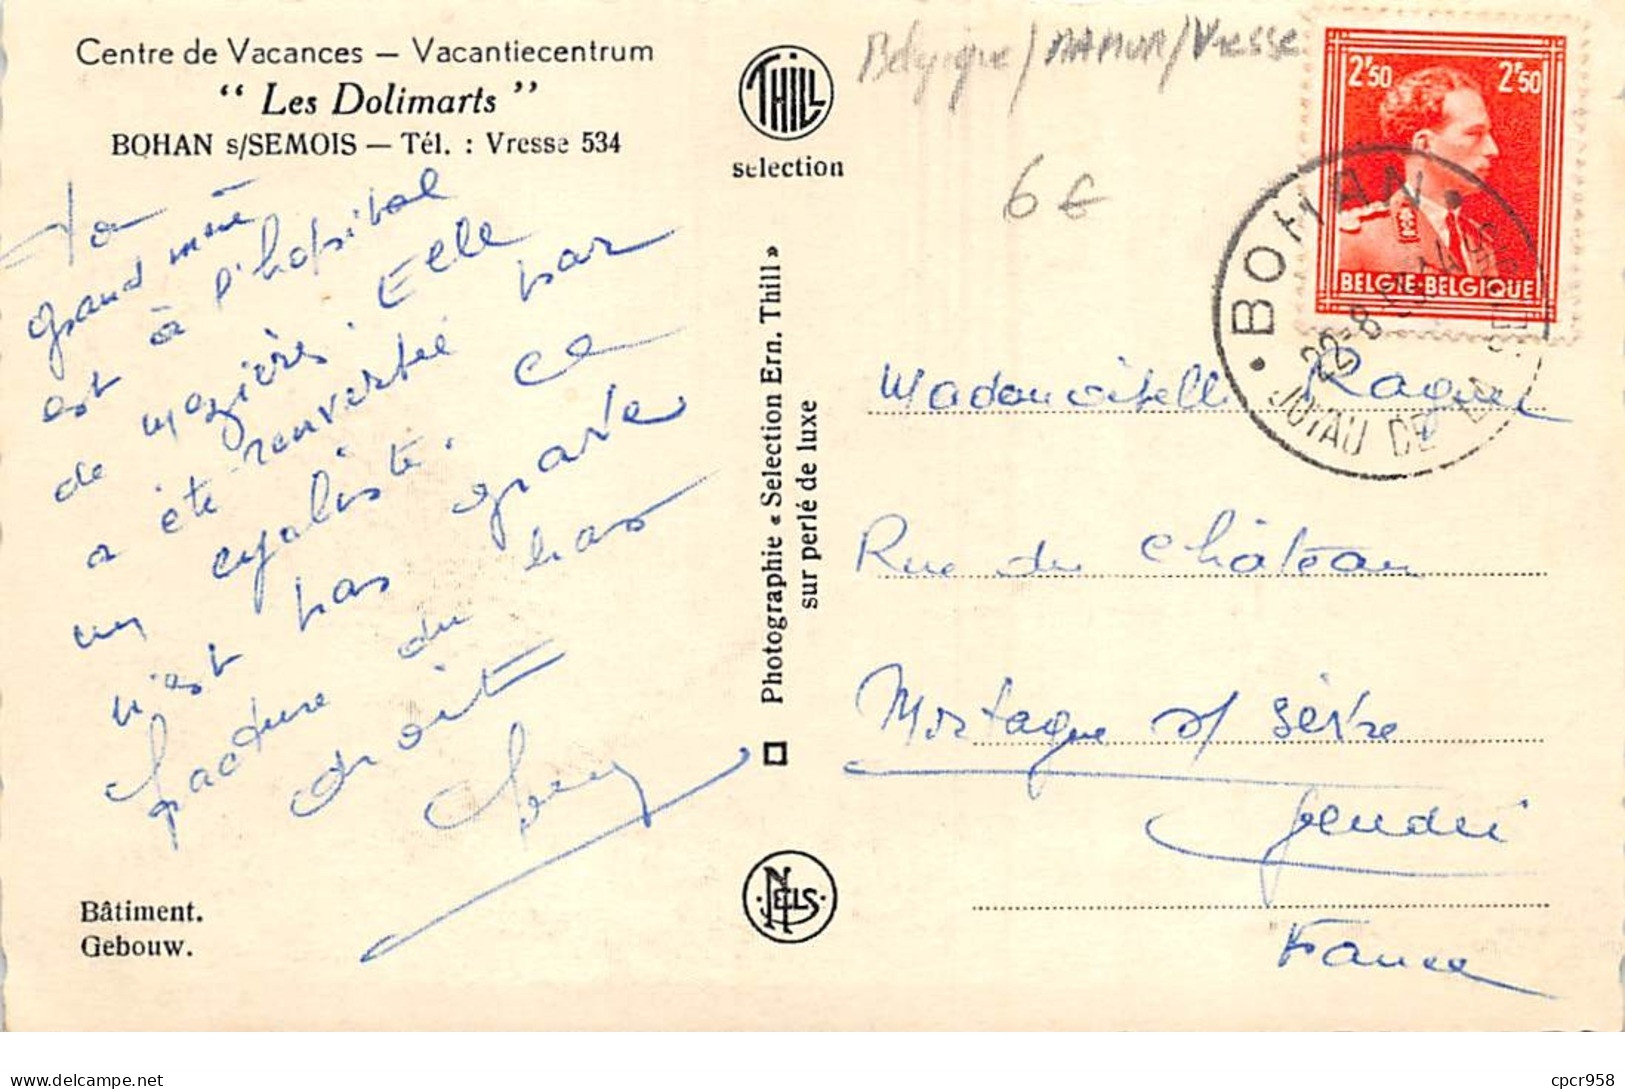 Centre de Vacances — Vacantiecentrum
“ Les Dolimarts ”
BOHAN s/SEMOIS — Tél. : Vresse 534
Ta
grand mère
est à l'hopital
de mezières. Elle
a été renversée par
un cycliste. Ce
n'est pas grave
fracture du bras
droit
Bâtiment.
Gebouw.
THILL
selection
Photographie « Selection Ern. Thill »
sur perlé de luxe
NELS
Belgique/NAMUR/Vresse
6 €
2F50 2F50
BELGIE-BELGIQUE
BOHAN
22-8
JOYAU DE LA
Mademoiselle
Rue du Château
Mortagne s/ Sèvre
Vendée
France
delcampe.net
cpcr958